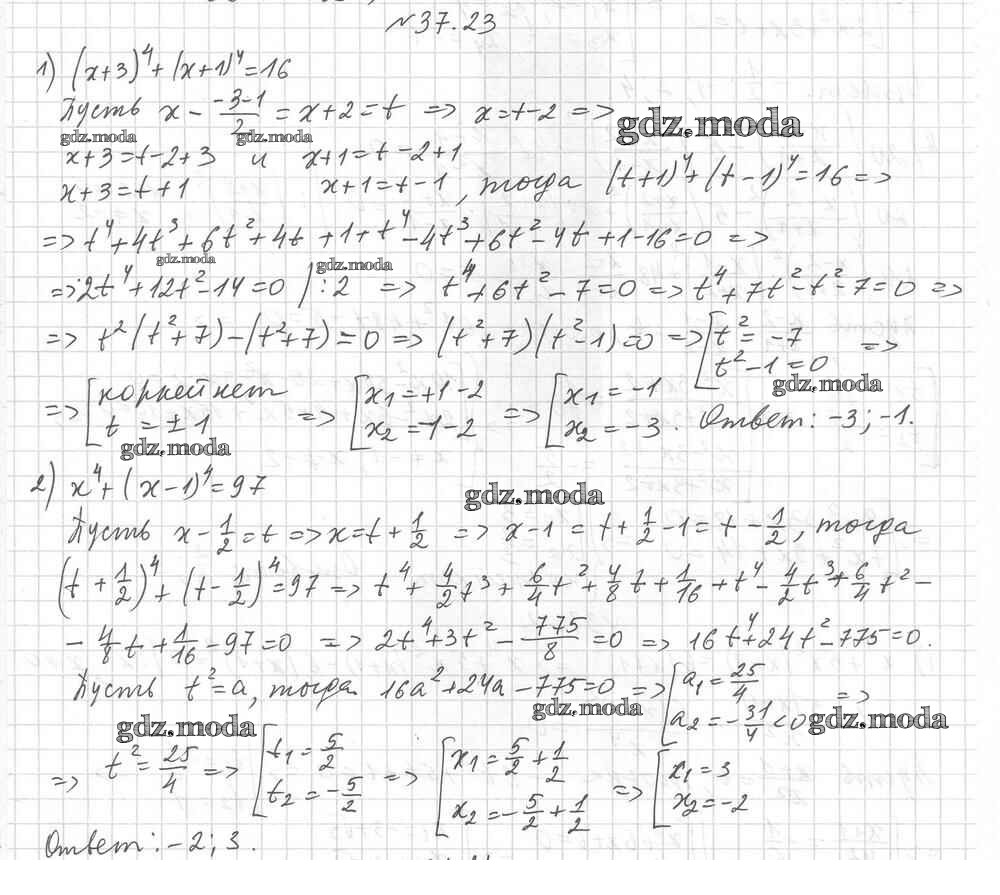 №37.23
1) (x+3)⁴+(x+1)⁴=16
Пусть x - (-3-1)/2 = x+2=t => x=t-2 =>
gdz.moda gdz.moda gdz.moda
x+3=t-2+3 и x+1=t-2+1
x+3=t+1 x+1=t-1, тогда (t+1)⁴+(t-1)⁴=16 =>
=> t⁴+4t³+6t²+4t+1+t⁴-4t³+6t²-4t+1-16=0 =>
gdz.moda gdz.moda
=> 2t⁴+12t²-14=0 |:2 => t⁴+6t²-7=0 => t⁴+7t²-t²-7=0 =>
=> t²(t²+7)-(t²+7)=0 => (t²+7)(t²-1)=0 => [t²=-7
t²-1=0 =>
gdz.moda
=> [корней нет
t=±1 => [x1=+1-2
x2=-1-2 => [x1=-1
x2=-3. Ответ: -3; -1.
gdz.moda
2) x⁴+(x-1)⁴=97
gdz.moda
Пусть x-1/2=t => x=t+1/2 => x-1=t+1/2-1=t-1/2, тогда
(t+1/2)⁴+(t-1/2)⁴=97 => t⁴+4/2t³+6/4t²+4/8t+1/16+t⁴-4/2t³+6/4t²-
-4/8t+1/16-97=0 => 2t⁴+3t²-775/8=0 => 16t⁴+24t²-775=0.
Пусть t²=a, тогда 16a²+24a-775=0 => [a1=25/4
a2=-31/4<0 =>
gdz.moda gdz.moda gdz.moda
=> t²=25/4 => [t1=5/2
t2=-5/2 => [x1=5/2+1/2
x2=-5/2+1/2 => [x1=3
x2=-2
Ответ: -2; 3.